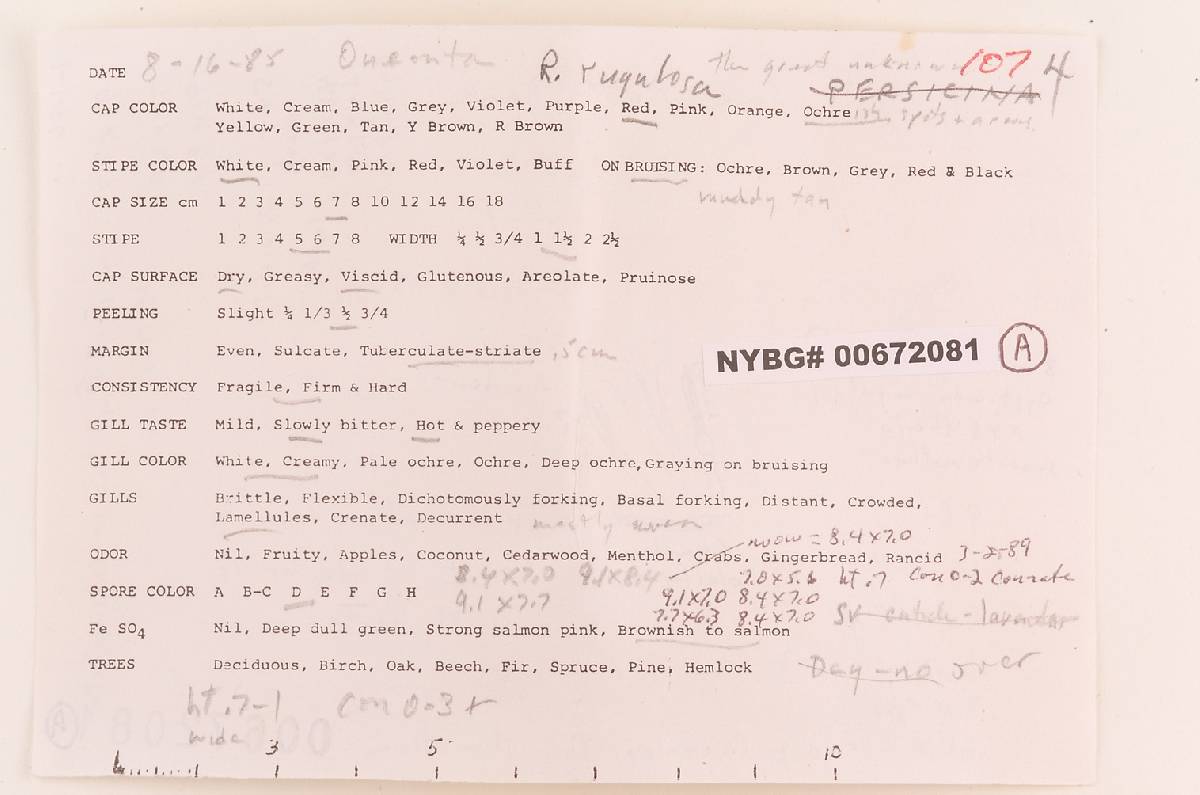 DATE 8-16-85 Oneonta R. rugulosa The great unknown 107 4
PERSICINA
CAP COLOR White, Cream, Blue, Grey, Violet, Purple, Red, Pink, Orange, Ochre ish spots + areas.
Yellow, Green, Tan, Y Brown, R Brown
STIPE COLOR White, Cream, Pink, Red, Violet, Buff ON BRUISING: Ochre, Brown, Grey, Red & Black
muddy tan
CAP SIZE cm 1 2 3 4 5 6 7 8 10 12 14 16 18
STIPE 1 2 3 4 5 6 7 8 WIDTH ¼ ½ 3/4 1 1½ 2 2½
CAP SURFACE Dry, Greasy, Viscid, Glutenous, Areolate, Pruinose
PEELING Slight ¼ 1/3 ½ 3/4
MARGIN Even, Sulcate, Tuberculate-striate .5cm
NYBG# 00672081 A
CONSISTENCY Fragile, Firm & Hard
GILL TASTE Mild, Slowly bitter, Hot & peppery
GILL COLOR White, Creamy, Pale ochre, Ochre, Deep ochre, Graying on bruising
GILLS Brittle, Flexible, Dichotomously forking, Basal forking, Distant, Crowded,
Lamellules, Crenate, Decurrent mostly even
now = 8.4×7.0
ODOR Nil, Fruity, Apples, Coconut, Cedarwood, Menthol, Crabs, Gingerbread, Rancid 3-2-89
8.4×7.0 9.1×8.4 7.0×5.6 ht .7 Con 0-2 Connate
SPORE COLOR A B-C D E F G H 9.1×7.7 9.1×7.0 8.4×7.0
7.7×6.3 8.4×7.0 SV cuticle - lavender
Fe SO4 Nil, Deep dull green, Strong salmon pink, Brownish to salmon
TREES Deciduous, Birch, Oak, Beech, Fir, Spruce, Pine, Hemlock Day - no over
ht .7-1 Con 0-3 +
wide
3 5 10